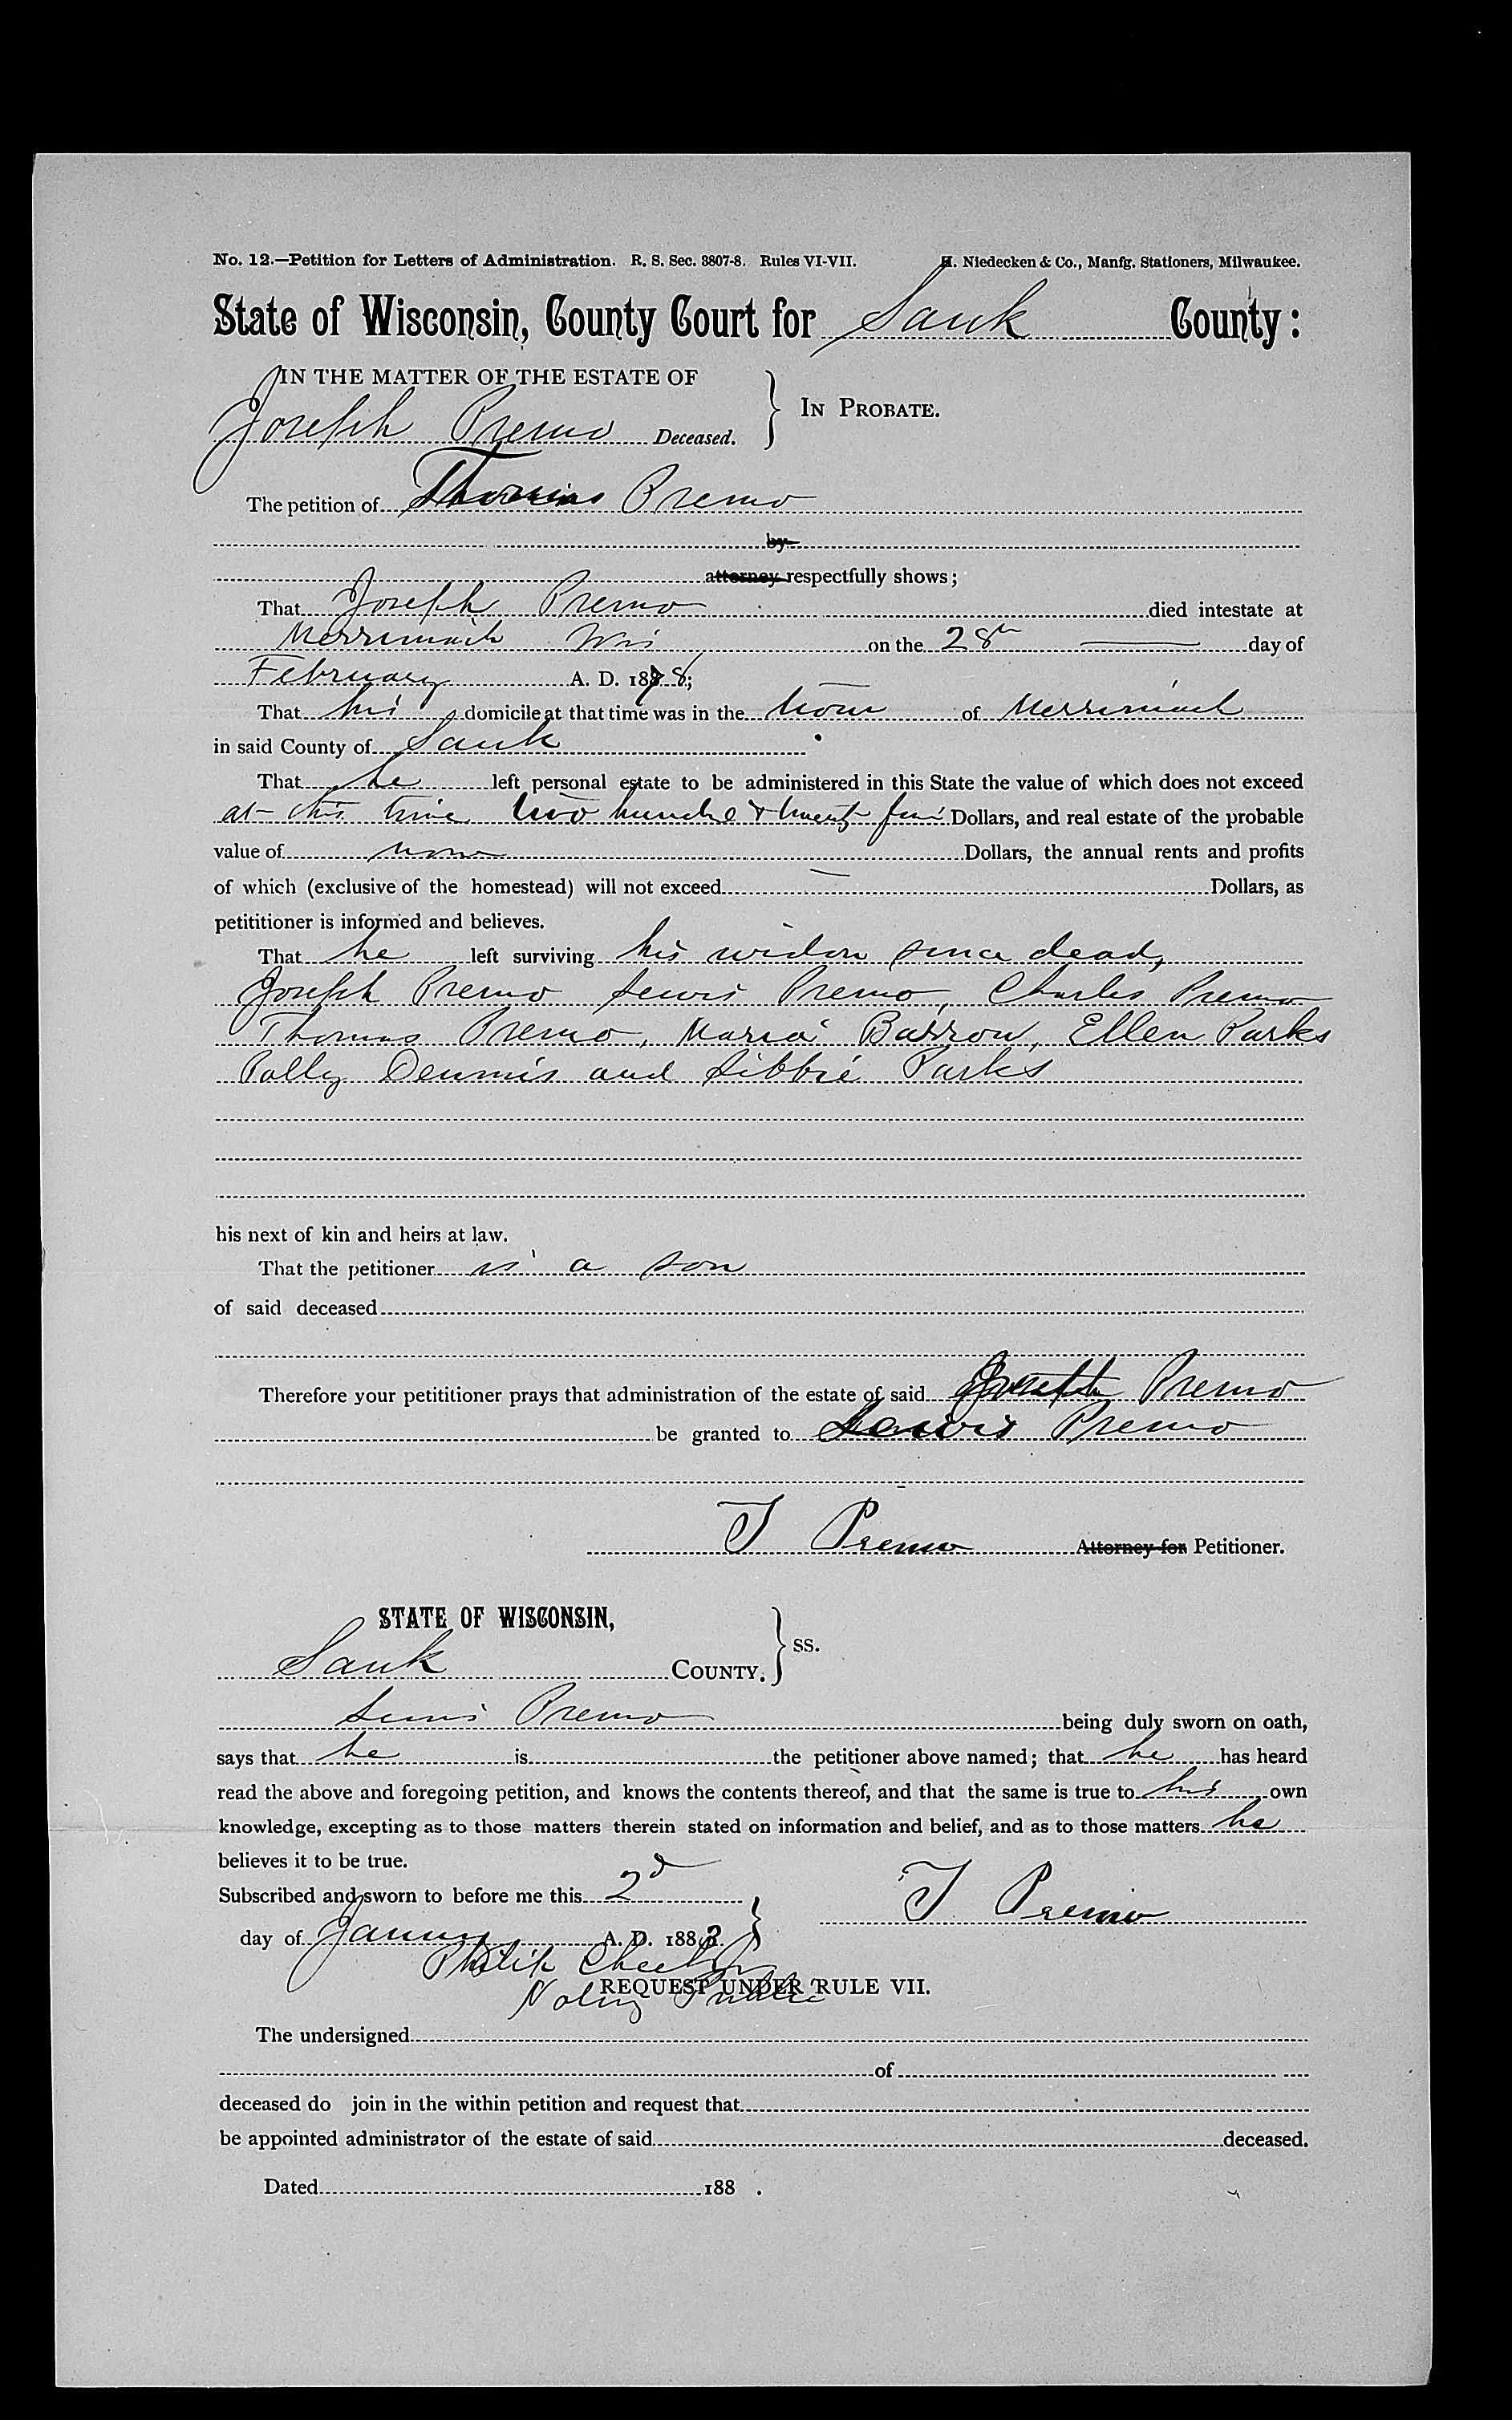 No. 12.—Petition for Letters of Administration. R. S. Sec. 3807-8. Rules VI-VII. H. Niedecken & Co., Manfg. Stationers, Milwaukee.
State of Wisconsin, County Court for Sauk County:
IN THE MATTER OF THE ESTATE OF
Joseph Premo Deceased. } IN PROBATE.
The petition of Thomas Premo
by
attorney respectfully shows;
That Joseph Premo died intestate at
Merrimack Wis on the 28th day of
February A. D. 1878;
That his domicile at that time was in the town of Merrimack
in said County of Sauk
That he left personal estate to be administered in this State the value of which does not exceed
at this time two hundred & twenty five Dollars, and real estate of the probable
value of none Dollars, the annual rents and profits
of which (exclusive of the homestead) will not exceed — Dollars, as
petititioner is informed and believes.
That he left surviving his widow since dead,
Joseph Premo Lewis Premo, Charles Premo
Thomas Premo, Maria Barrow, Ellen Parks
Polly Dennis and Libbie Parks
his next of kin and heirs at law.
That the petitioner is a son
of said deceased
Therefore your petititioner prays that administration of the estate of said Joseph Premo
be granted to Lewis Premo
T Premo Attorney for Petitioner.
STATE OF WISCONSIN,
Sauk COUNTY. } ss.
Lewis Premo being duly sworn on oath,
says that he is the petitioner above named; that he has heard
read the above and foregoing petition, and knows the contents thereof, and that the same is true to his own
knowledge, excepting as to those matters therein stated on information and belief, and as to those matters he
believes it to be true.
Subscribed and sworn to before me this 2d
T Premo
day of January A. D. 1883.
Philip Cheek Jr
Notary Public
REQUEST UNDER RULE VII.
The undersigned
of
deceased do join in the within petition and request that
be appointed administrator of the estate of said deceased.
Dated 188 .